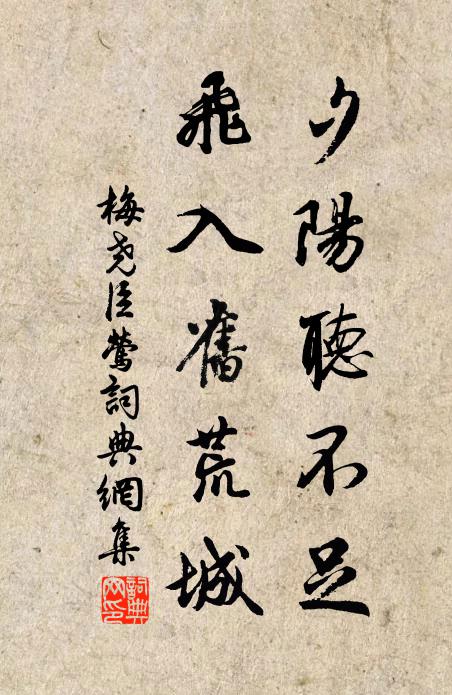 夕陽聽不足
飛入舊荒城
梅堯臣鶯詞典網集
詞典